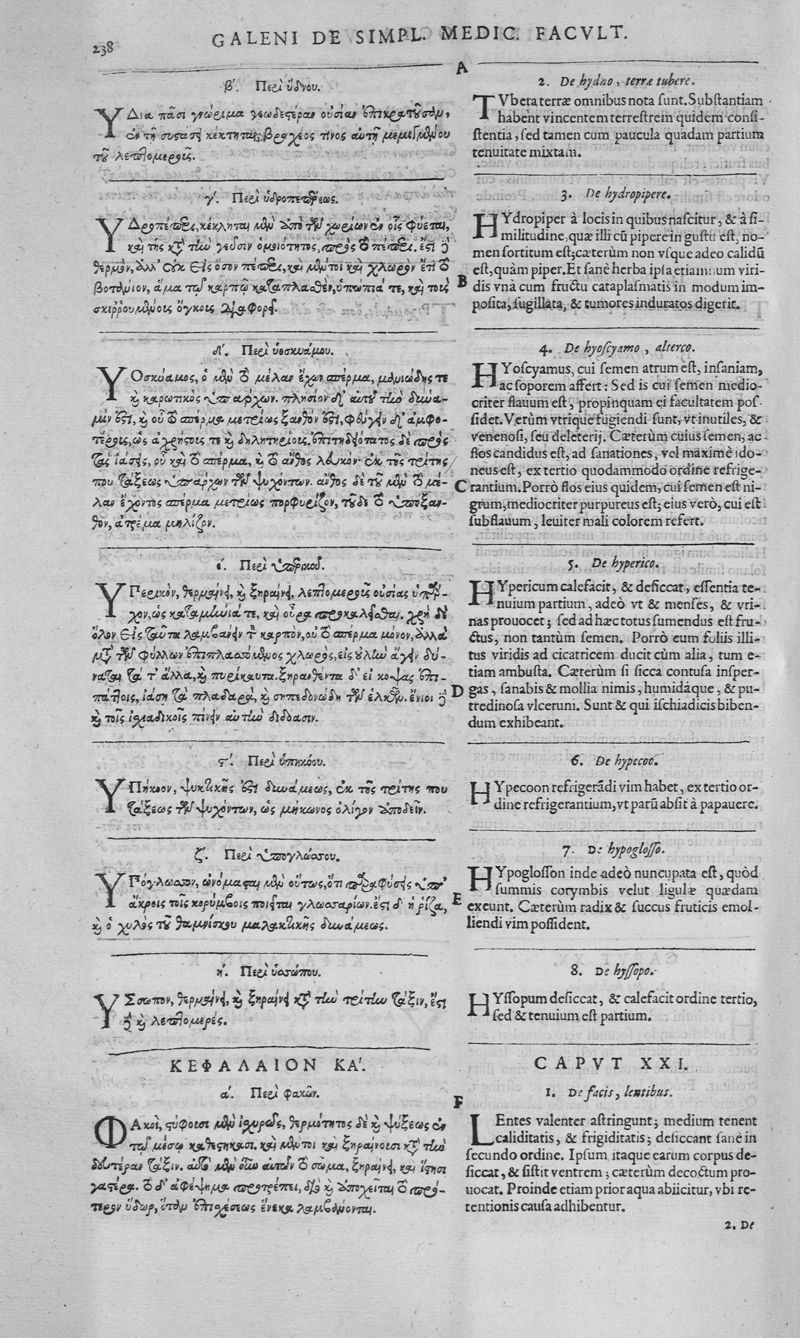 238
GALENI DE SIMPL. MEDIC. FACVLT.
β΄. Περὶ ὕδνου.
ΥΔνα πᾶσι γνώριμα γεωδεστέραν οὐσίαν ἐπικρατοῦσαν,
ἐν τῇ συστάσει κέκτηται, βραχέος τινος αὐτῇ μεμιγμένου
τοῦ λεπτομεροῦς.
γ΄. Περὶ ὑδροπεπέρεως.
ΥΔροπέπερι, κέκληται μὲν ἀπὸ τῶν χωρίων ἐν οἷς φύεται,
καὶ τῆς κατὰ τὴν γεῦσιν ὁμοιότητος, πρὸς τὸ πέπερι. ἔστι δὲ
θερμὸν, ἀλλ' οὐκ εἰς ὅσον πέπερι, καὶ μέντοι καὶ χλωρὸν ἔτι τὸ
βοτάνιον, ἅμα τῷ καρπῷ καταπλασθὲν, ὑπώπιά τε, καὶ τοὺς
σκιῤῥουμένους ὄγκους διαφορεῖ.
δ΄. Περὶ ὑοσκυάμου.
ΥΟσκύαμος, ὁ μὲν τὸ μέλαν ἔχων σπέρμα, μανιώδης τε
καὶ καρωτικὸς ὑπάρχων. πλησίον δ' αὐτοῦ τὴν δύνα-
μίν ἐστι, καὶ οὗ τὸ σπέρμα μετρίως ξανθόν ἐστι, φεύγειν δ' ἀμφο-
τέρους, ὡς ἀχρήστους τε καὶ δηλητηρίους, ἐπιτηδειότατος δὲ πρὸς
τὰς ἰάσεις, οὗ καὶ τὸ σπέρμα, καὶ τὸ ἄνθος λευκόν· ἐκ τῆς τρίτης
που τάξεως ὑπάρχων τῶν ψυχόντων. ἄνθος δὲ τοῦ μὲν τὸ μέ-
λαν ἔχοντος σπέρμα μετρίως πορφυρίζον, τοῦ δὲ τὸ ὑπόξαν-
θον, ἀτρέμα μηλίζον.
ε΄. Περὶ ὑπερικοῦ.
ΥΠερικὸν, θερμαίνει, καὶ ξηραίνει, λεπτομεροῦς οὐσίας ὑπάρ-
χον, ὡς καταμήνιά τε, καὶ οὖρα προκαλεῖσθαι. χρὴ δὲ
ὅλον εἰς ταῦτα λαμβάνειν τὸν καρπὸν, οὐ τὸ σπέρμα μόνον, ἀλλὰ
μετὰ τῶν φύλλων ἐπιπλασσόμενος χλωρὸς, εἰς οὐλὴν ἄγειν δύ-
ναται τά τ' ἄλλα, καὶ πυρίκαυτα. ξηρανθέντα δ' εἰ κόψας ἐπι-
πάττοις, ἰάσῃ τὰ πλαδαρὰ, καὶ σηπεδονώδη τῶν ἑλκῶν. ἔνιοι δὲ
καὶ τοῖς ἰσχιαδικοῖς πίνειν αὐτὴν διδόασιν.
ϛ΄. Περὶ ὑπηκόου.
ΥΠήκοον, ψυκτικῆς ἐστι δυνάμεως, ἐκ τῆς τρίτης που
τάξεως τῶν ψυχόντων, ὡς μήκωνος ὀλίγον ἀποδεῖν.
ζ΄. Περὶ ὑπογλώσσου.
ΥΠόγλωσσον, ὠνόμασται μὲν οὕτως, ὅτι παραφύσεις ἐπ'
ἄκροις τοῖς κορύμβοις ποιεῖται γλωσσαρίων. ἔστι δ' ἡ ῥίζα,
καὶ ὁ χυλὸς τοῦ θαμνίσκου μαλακτικῆς δυνάμεως.
η΄. Περὶ ὑσσώπου.
ΥΣσωπον, θερμαίνει, καὶ ξηραίνει κατὰ τὴν τρίτην τάξιν, ἔστι
δὲ καὶ λεπτομερές.
ΚΕΦΑΛΑΙΟΝ ΚΑ΄.
α΄. Περὶ φακῶν.
ΦΑκοὶ, στύφουσι μὲν ἰσχυρῶς, θερμότητος δὲ καὶ ψύξεως ἐν
τῷ μέσῳ καθεστήκασι. καὶ μέντοι καὶ ξηραίνουσι κατὰ τὴν
δευτέραν τάξιν. αὐτὸ μὲν οὖν αὐτῶν τὸ σῶμα, ξηραίνει, καὶ ἵστησι
γαστέρα. τὸ δ' ἀφέψημα προτρέπει, διὸ καὶ ἀποχεῖται τὸ πρό-
τερον ὕδωρ, ὅταν ἐπισχέσεως ἕνεκα λαμβάνωνται.
A
B
C
D
E
F
2. De hydno, terræ tubere.
TVbera terræ omnibus nota sunt. Substantiam
habent vincentem terrestrem quidem consi-
stentia, sed tamen cum paucula quadam partium
tenuitate mixtam.
3. De hydropipere.
HYdropiper à locis in quibus nascitur, & à si-
militudine, quæ illi cũ pipere in gustu est, no-
men sortitum est; cæterùm non vsque adeo calidũ
est, quàm piper. Et sanè herba ipsa etiamnum viri-
dis vnà cum fructu cataplasmatis in modum im-
posita, sugillata, & tumores induratos digerit.
4. De hyoscyamo, alterco.
HYoscyamus, cui semen atrum est, insaniam,
ac soporem affert: Sed is cui semen medio-
criter flauum est, propinquam ei facultatem pos-
sidet. Verùm vtrique fugiendi sunt, vt inutiles, &
venenosi, seu deleterij. Cæterùm cuius semen, ac
flos candidus est, ad sanationes, vel maximè ido-
neus est, ex tertio quodammodo ordine refrige-
rantium. Porrò flos eius quidem, cui semen est ni-
grum, mediocriter purpureus est; eius verò, cui est
subflauum, leuiter mali colorem refert.
5. De hyperico.
HYpericum calefacit, & desiccat, essentia te-
nuium partium, adeò vt & menses, & vri-
nas prouocet; sed ad hæc totus sumendus est fru-
ctus, non tantùm semen. Porrò eum foliis illi-
tus viridis ad cicatricem ducit cùm alia, tum e-
tiam ambusta. Cæterùm si sicca contusa insper-
gas, sanabis & mollia nimis, humidáque, & pu-
tredinosa vlcerum. Sunt & qui ischiadicis biben-
dum exhibeant.
6. De hypecoo.
HYpecoon refrigerãdi vim habet, ex tertio or-
dine refrigerantium, vt parũ absit à papauere.
7. De hypoglosso.
HYpoglosson inde adeò nuncupata est, quòd
summis corymbis velut ligulæ quædam
exeunt. Cæterùm radix & succus fruticis emol-
liendi vim possident.
8. De hyssopo.
HYssopum desiccat, & calefacit ordine tertio,
sed & tenuium est partium.
CAPVT XXI.
1. De facis, lentibus.
LEntes valenter astringunt; medium tenent
caliditatis, & frigiditatis; desiccant sanè in
secundo ordine. Ipsum itaque earum corpus de-
siccat, & sistit ventrem; cæterùm decoctum pro-
uocat. Proinde etiam prior aqua abiicitur, vbi re-
tentionis causa adhibentur.
2. De